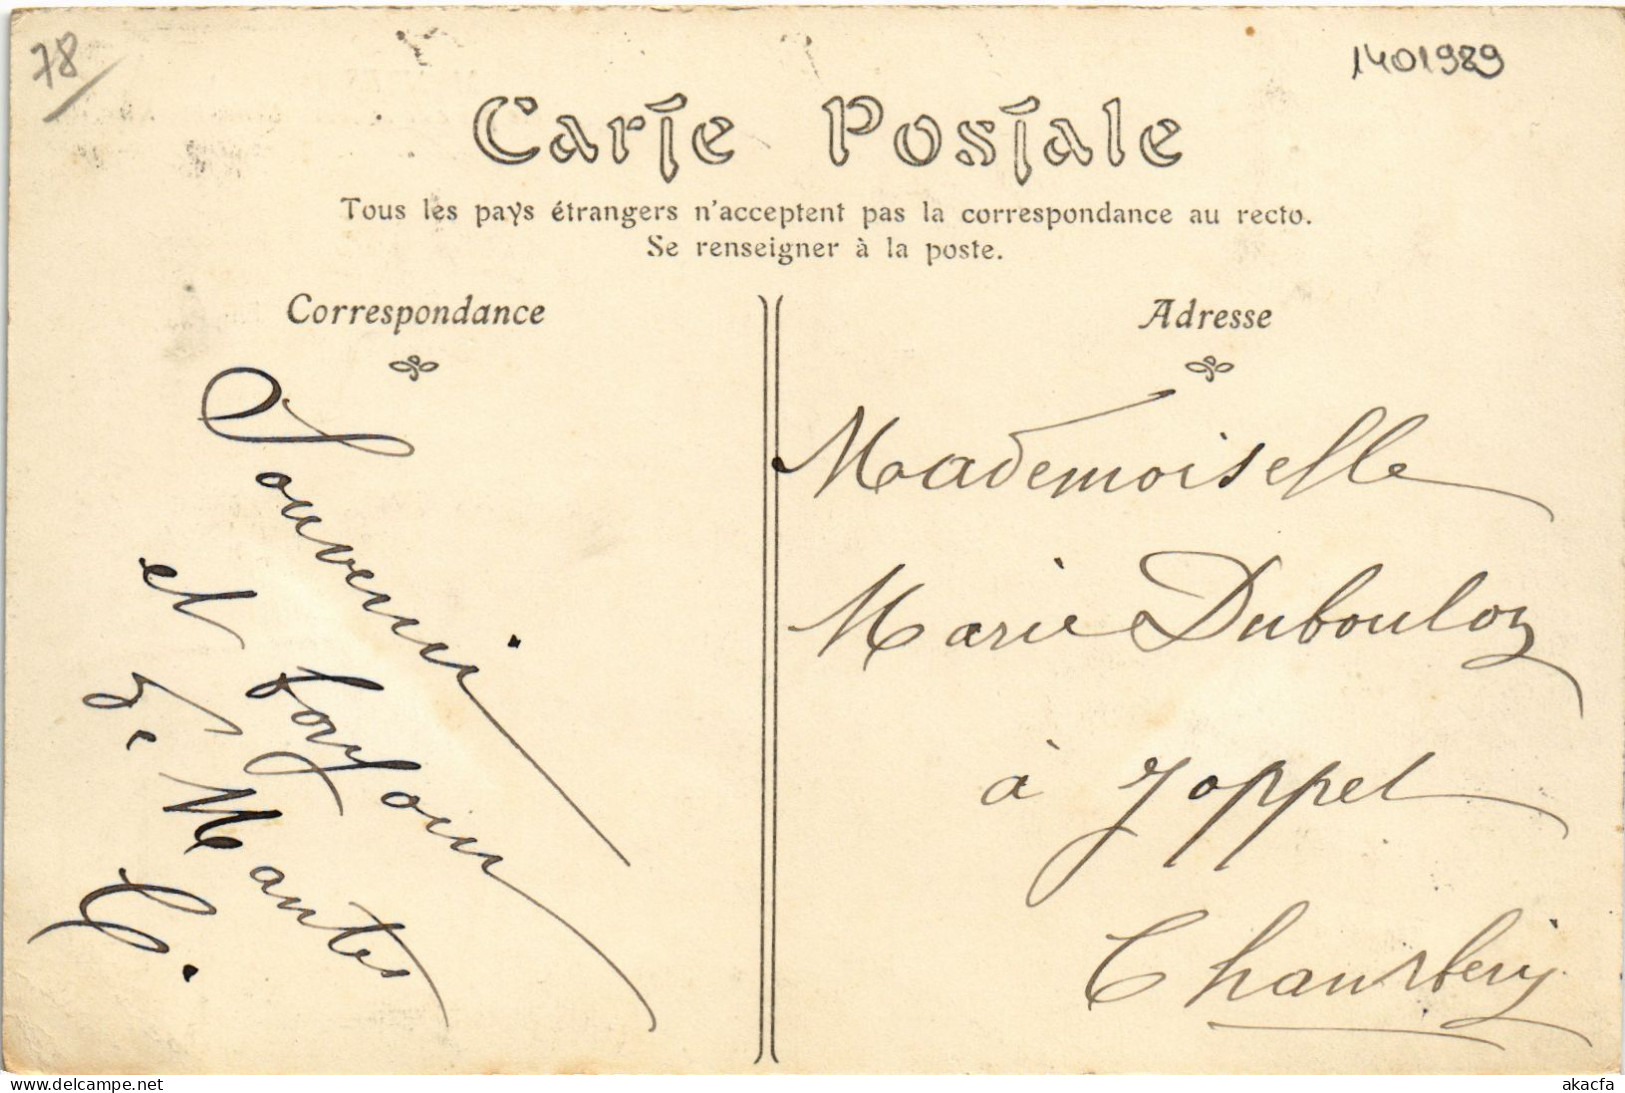 78
1401989
Carte Postale
Tous les pays étrangers n'acceptent pas la correspondance au recto.
Se renseigner à la poste.
Correspondance
Souvenir
et bonjour
de Mantes
C.
Adresse
Mademoiselle
Marie Dubouloz
à Joppet
Chambéry
www.delcampe.net
akacfa